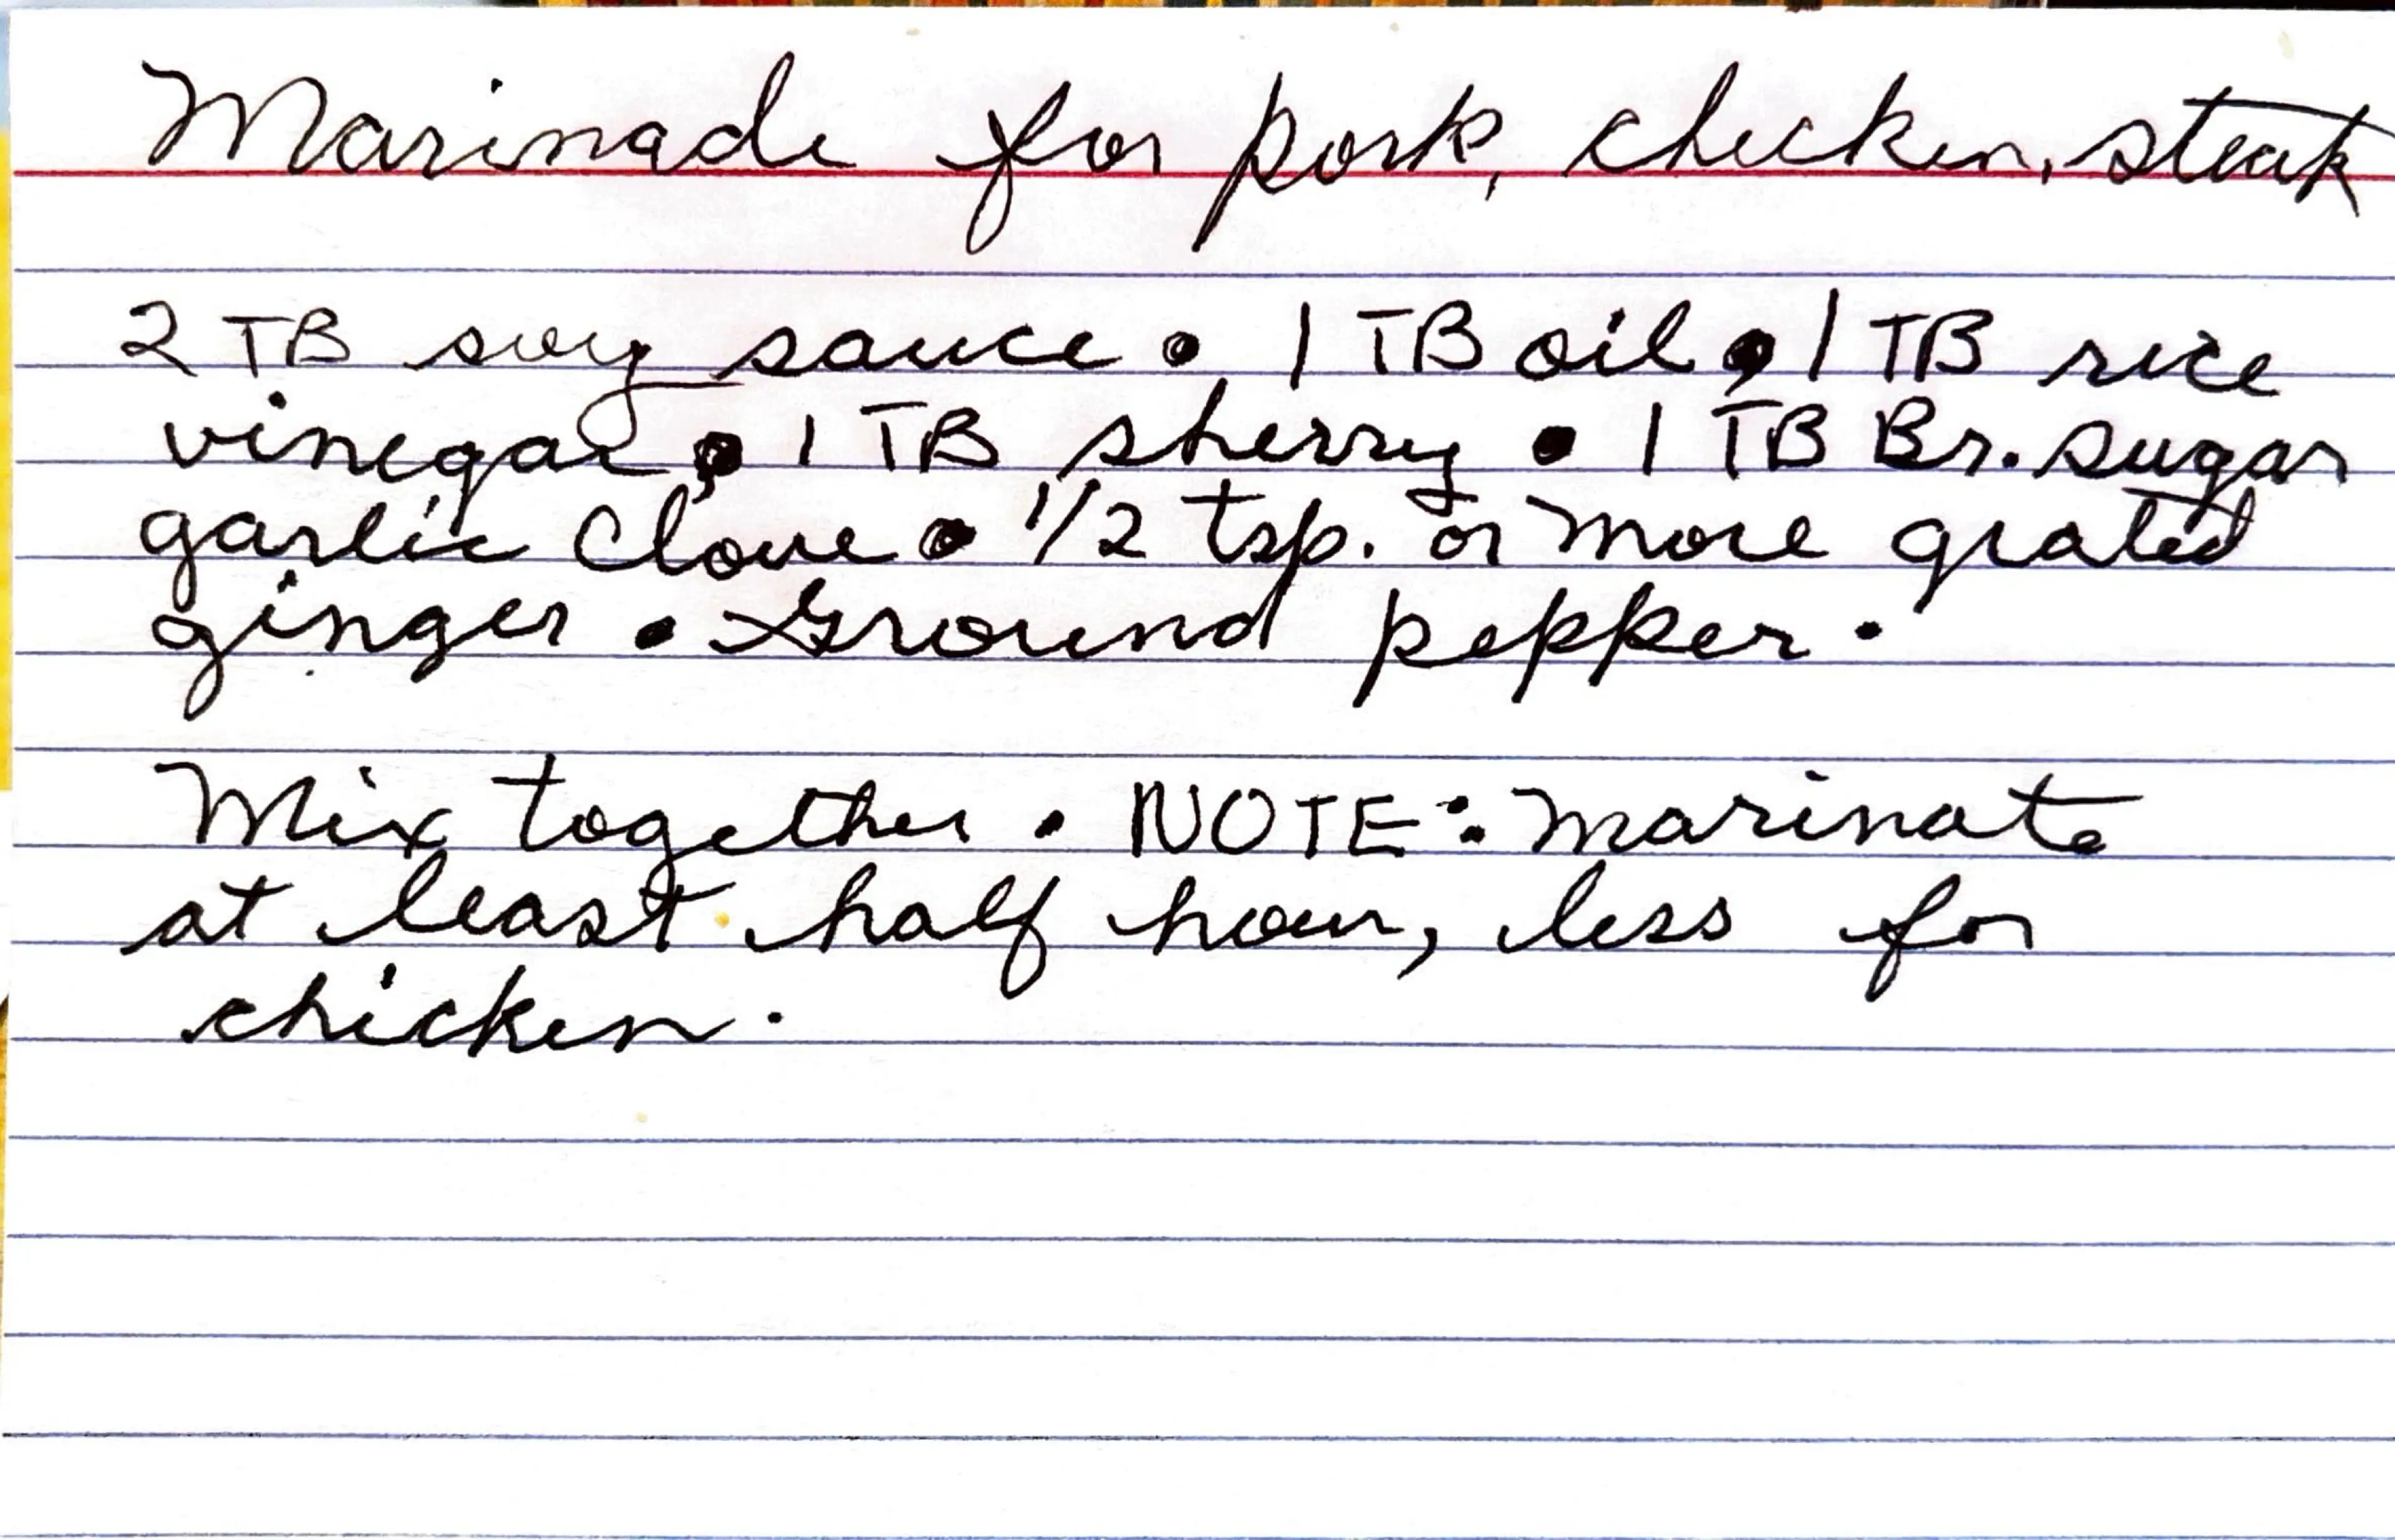 Marinade for pork, chicken, steak
2 TB soy sauce • 1 TB oil • 1 TB rice
vinegar • 1 TB sherry • 1 TB Br. sugar
garlic clove • 1/2 tsp. or more grated
ginger • Ground pepper.
Mix together. NOTE: marinate
at least half hour, less for
chicken.